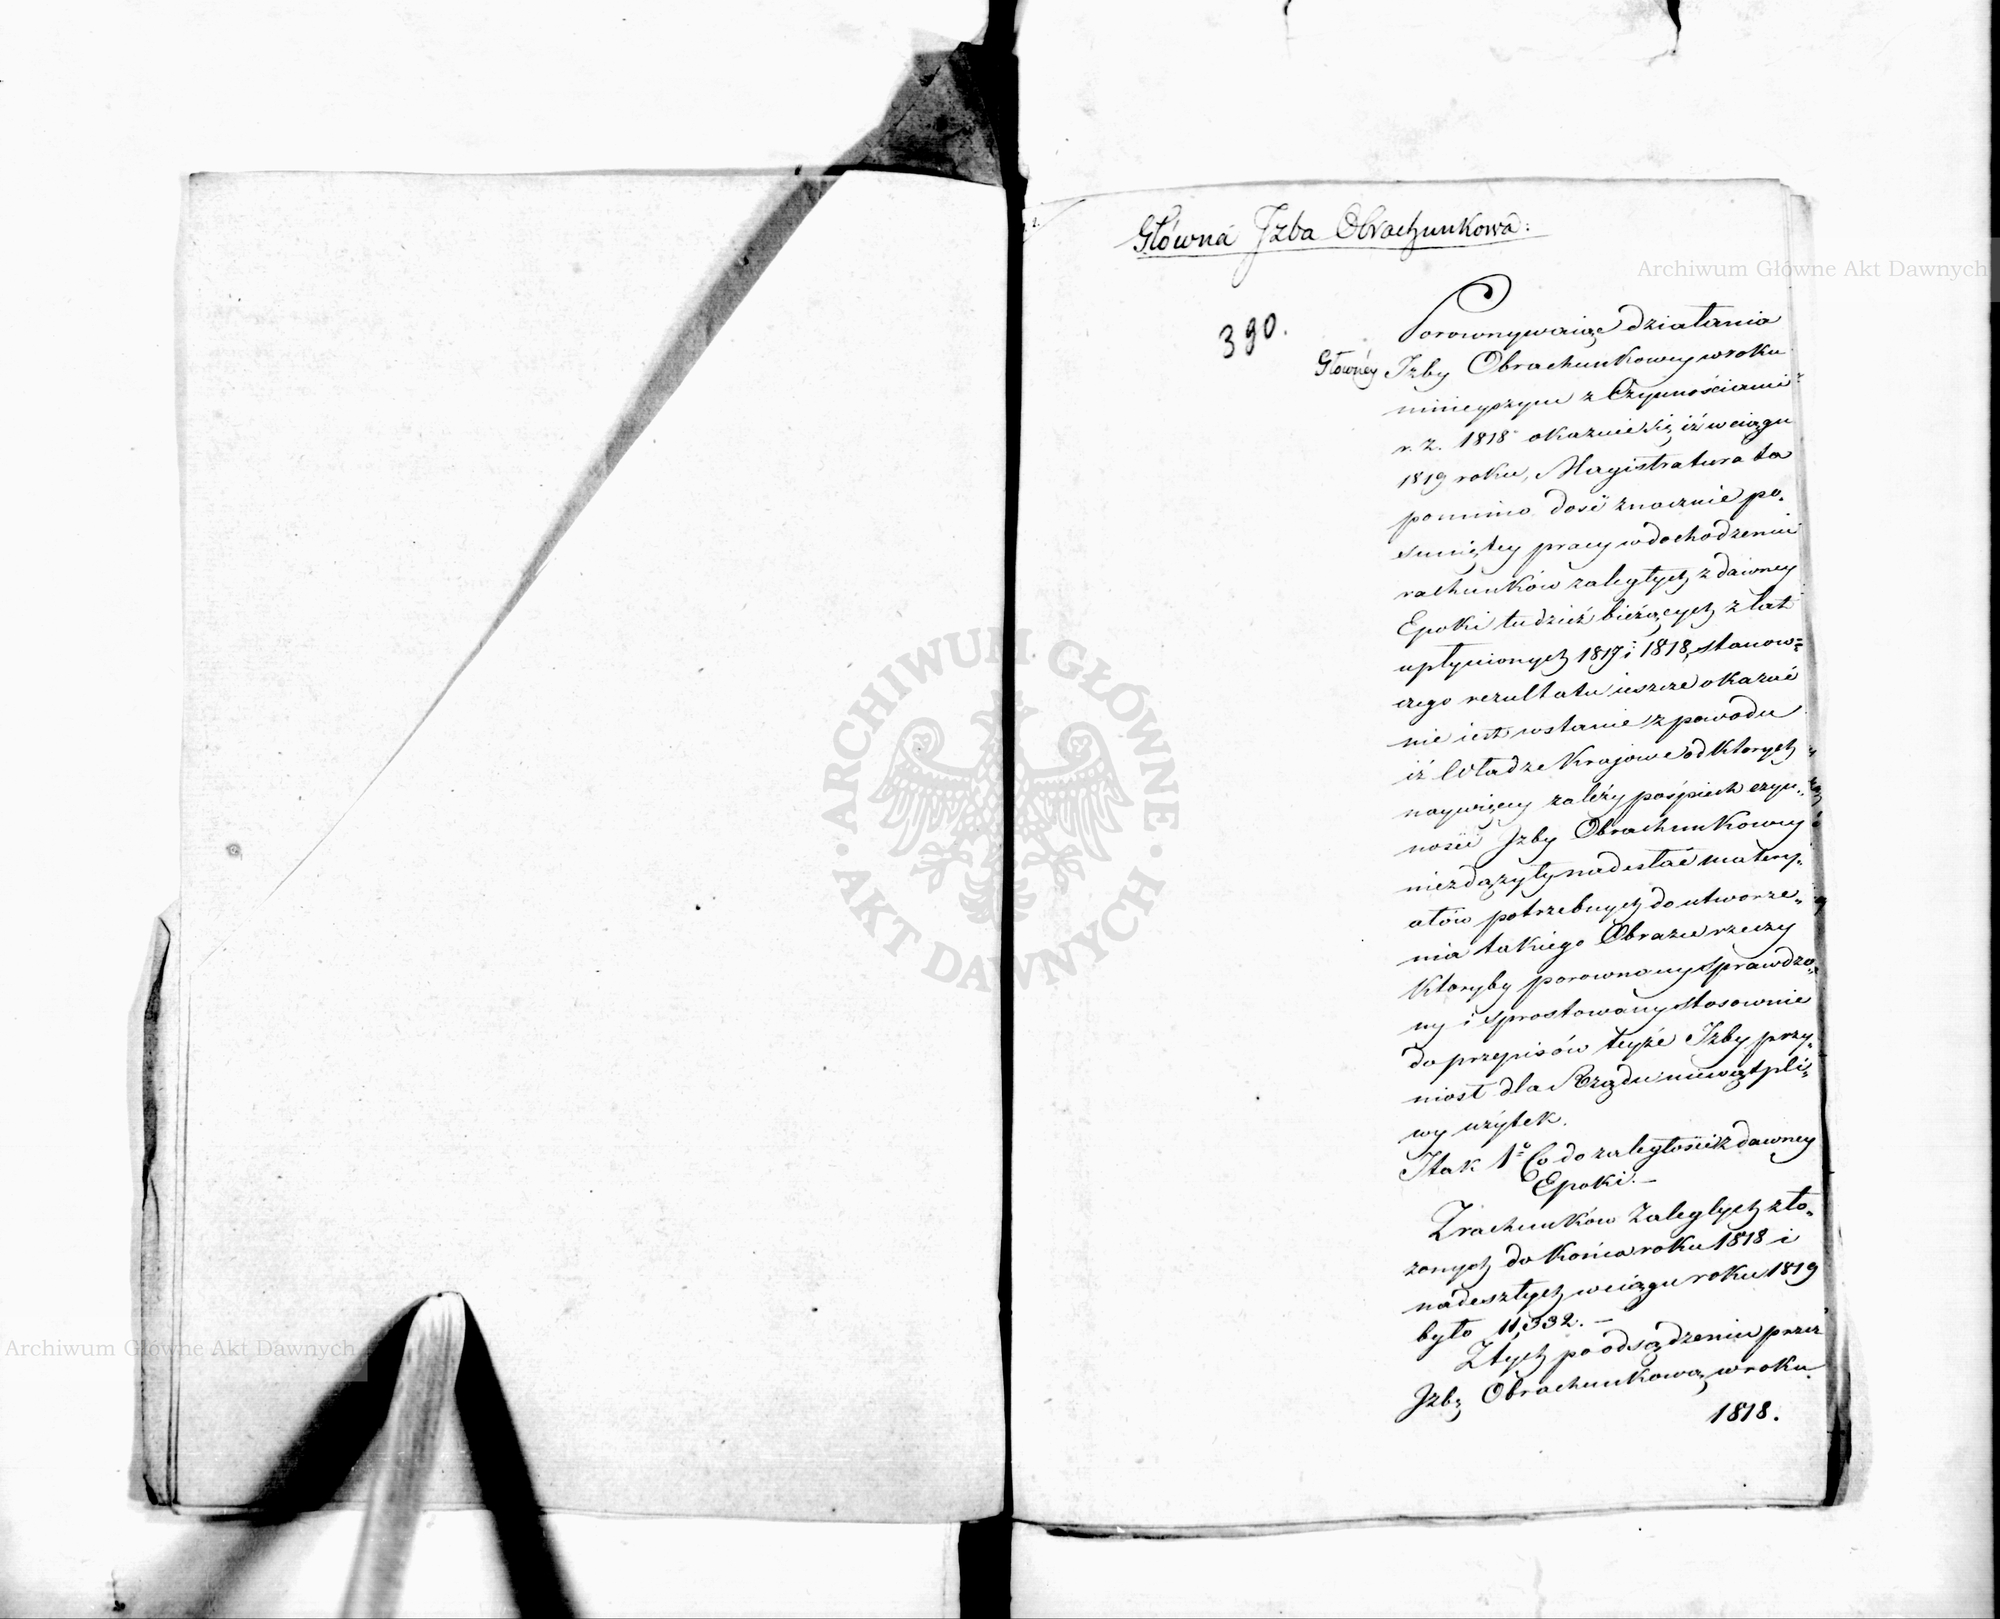 Główna Izba Obrachunkowa:
390.
Porownywaiąc działania
Głównéy Izby Obrachunkowey w roku
ninieyszym z Czynnościami
r. z. 1818 okazuie się, iż w ciągu
1819 roku, Magistratura ta
pomimo dość znacznie po„
suniętey pracy w dochodzeniu
rachunków zaległych z dawney
Epoki tudzież bieżących z lat
upłynionych 1817 i 1818, stanow=
czego rezultatu ieszcze okazać
nie iest w stanie z powodu
iż Władze Krajowe od ktorych
naywięcey zależy pośpiech czyn„
ności Izby Obrachunkowey
niezdążyły nadesłać matery„
ałów potrzebnych do utworze„
nia takiego Obrazu rzeczy
ktoryby porownany sprawdzo„
ny i sprostowany stosownie
do przepisów teyże Izby przy„
niosł dla Rządu niewątpli„
wy użytek.
I tak 1o Co do zaległości z dawney
Epoki.—
Z rachunków zaległych zło„
zonych do końca roku 1818 i
nadeszłych w ciągu roku 1819
było 11,332.—
Z tych po odsądzeniu przez
Izbę Obrachunkową w roku
1818.
Archiwum Główne Akt Dawnych
Archiwum Główne Akt Dawnych
ARCHIWUM GŁÓWNE
AKT DAWNYCH